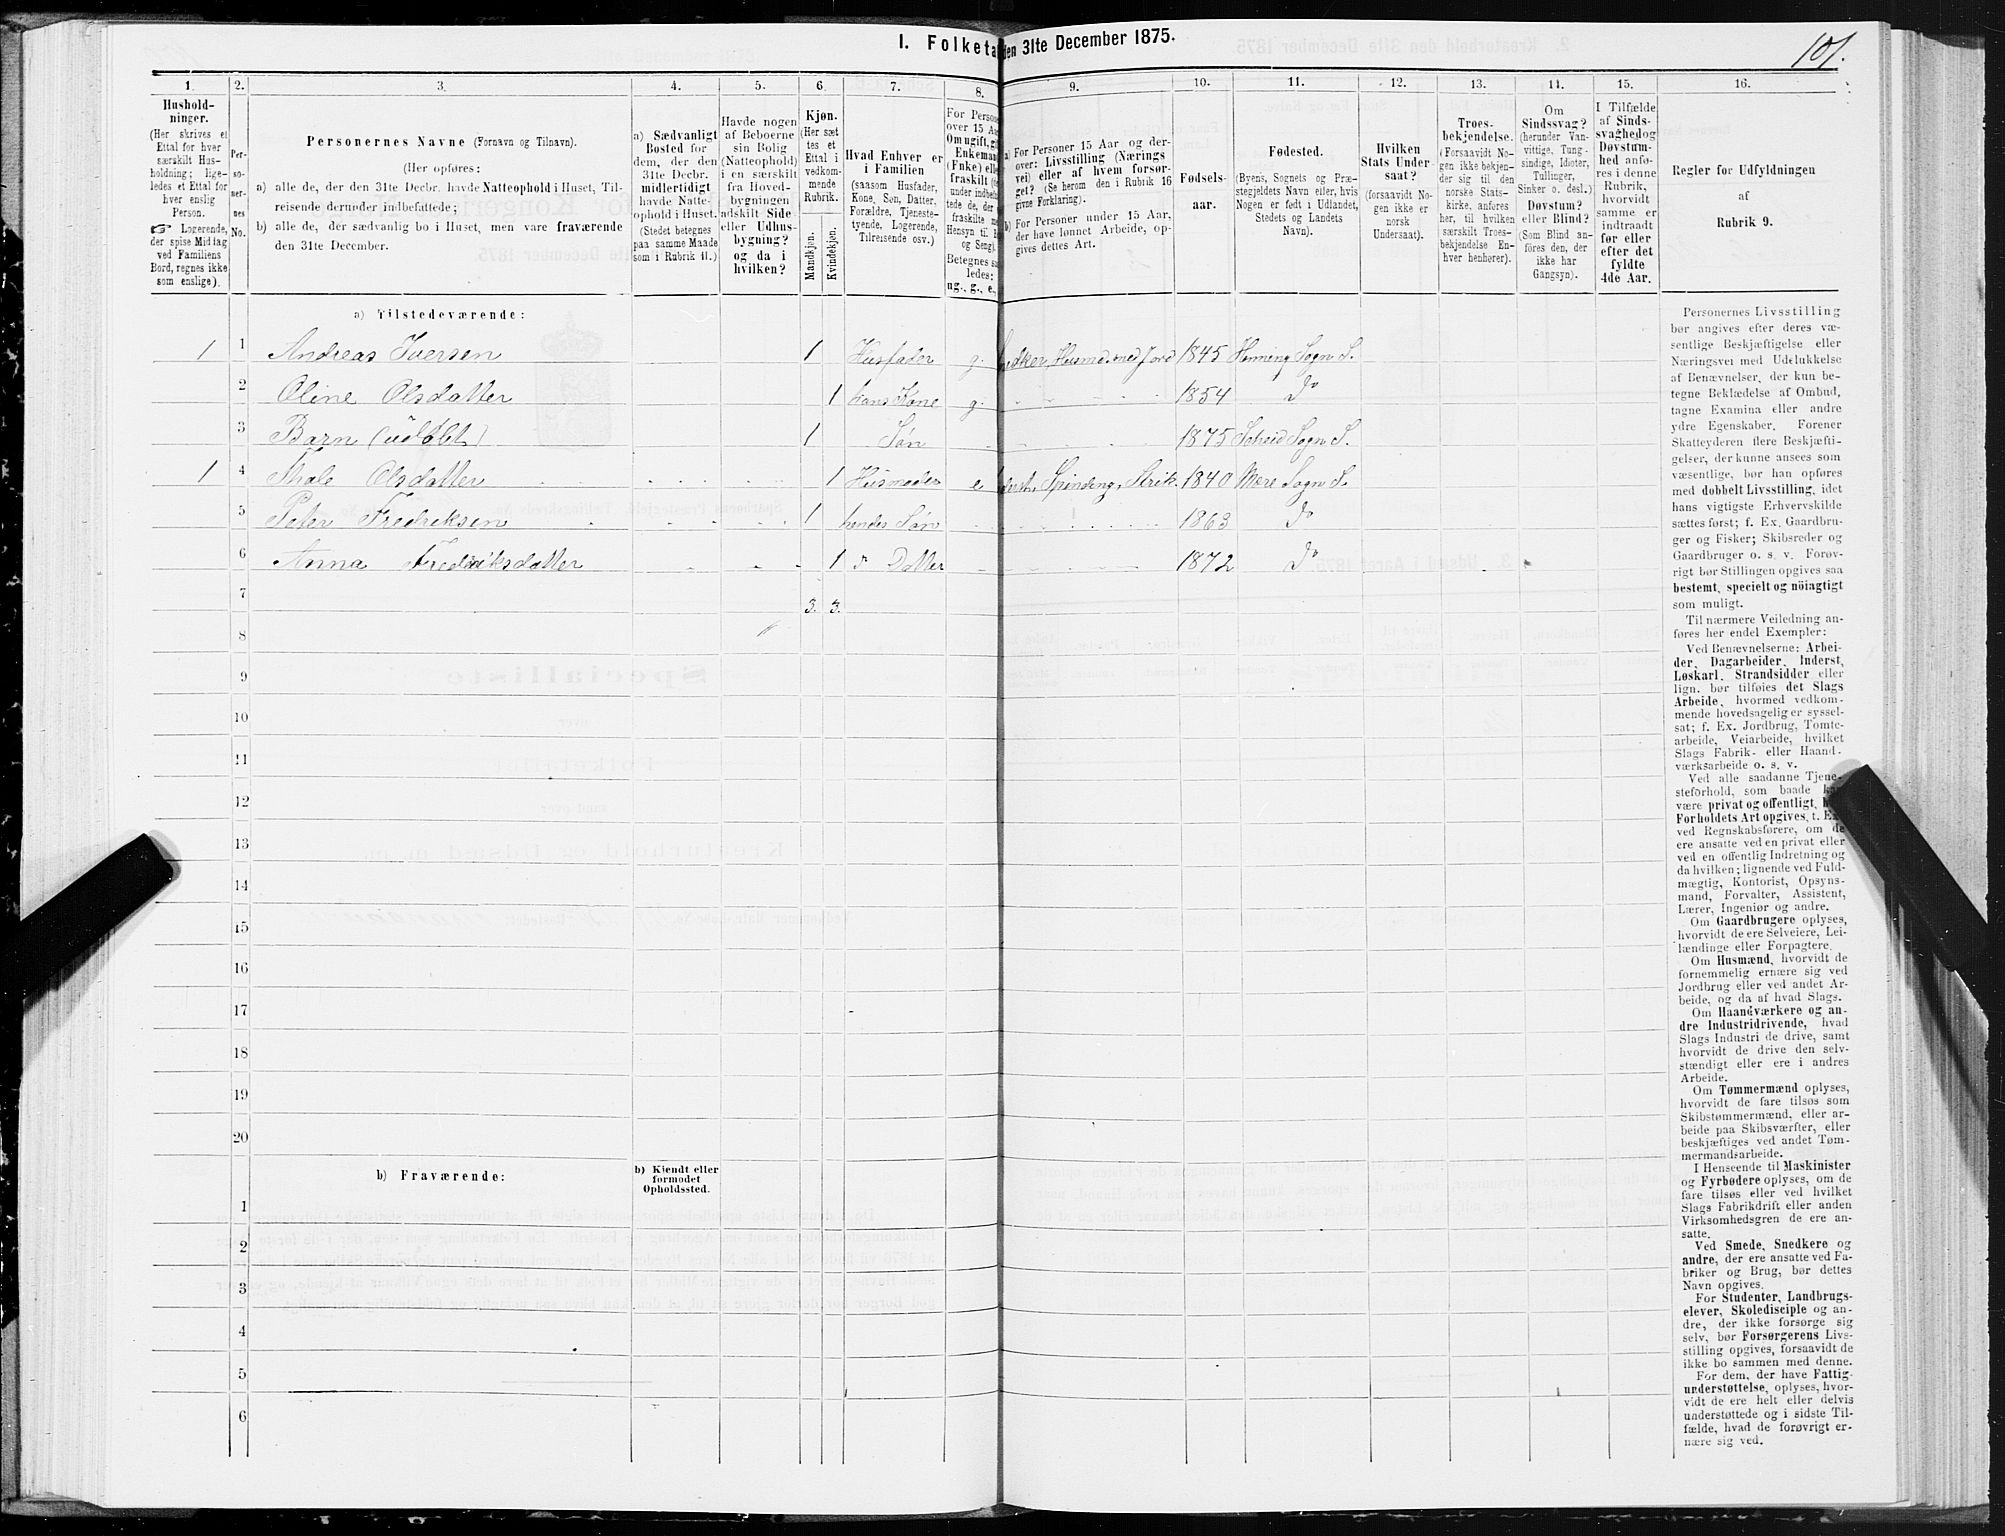 I. Folketa den 31te December 1875.
101.
1. 2. 3. 4. 5. 6. 7. 8. 9. 10. 11. 12. 13. 14. 15. 16.
Hushold-
ninger.
(Her skrives et
Ettal for hver
særskilt Hus-
holdning; lige-
ledes et Ettal for
hver enslig
Person.
☞ Logerende,
der spise Middag
ved Familiens
Bord, regnes ikke
som enslige).
Per-
so-
ner-
nes
No.
Personernes Navne (Fornavn og Tilnavn).
(Her opføres:
a) alle de, der den 31te Decbr. havde Natteophold i Huset, Til-
reisende derunder indbefattede;
b) alle de, der sædvanlig bo i Huset, men vare fraværende
den 31te December.
a) Sædvanligt
Bosted for
dem, der den
31te Decbr.
midlertidigt
havde Natte-
ophold i Huset.
(Stedet betegnes
paa samme Maade
som i Rubrik 11.)
Havde nogen
af Beboerne
sin Bolig
(Natteophold)
i en særskilt
fra Hoved-
bygningen
adskilt Side-
eller Udhus-
bygning?
og da i
hvilken?
Kjøn.
(Her sæt-
tes et
Ettal i
vedkom-
mende
Rubrik.
Mandkjøn.
Kvindekjøn.
Hvad Enhver er
i Familien
(saasom Husfader,
Kone, Søn, Datter,
Forældre, Tjeneste-
tyende, Logerende,
Tilreisende osv.)
For Persone
over 15 Aa
Om ugift, gi
Enkeman
(Enke) elle
fraskilt (
under indbefat-
tede de, der e
fraskilte me
Hensyn til B
og Seng).
Betegnes saa
ledes:
ug., g., e.,
a) For Personer 15 Aar og der-
over: Livsstilling (Nærings
vei) eller af hvem forsør-
get? (Se herom den i Rubrik 16
givne Forklaring).
b) For Personer under 15 Aar,
der have lønnet Arbeide, op-
gives dettes Art.
Fødsels-
aar.
Fødested.
(Byens, Sognets og Præ-
stegjeldets Navn eller, hvis
Nogen er født i Udlandet,
Stedets og Landets
Navn).
Hvilken
Stats Under-
saat?
(forsaavidt No-
gen ikke er
norsk
Undersaat).
Troes-
bekjendelse.
(Forsaavidt No-
gen ikke bekjen-
der sig til den
norske Stats-
kirke, anføres
her, til hvilken
særskilt Troes-
bekjendelse En-
hver henhører).
Om
Sindssvag?
(herunder Van-
vittige, Tung-
sindige, Idioter,
Tullinger,
Sinker o. desl.)
Døvstum?
eller Blind?
(Som Blind an-
føres den, der
ikke har
Gangsyn).
I Tilfælde
af Sinds-
svaghed og
Døvstum-
hed anfø-
res i denne
Rubrik,
hvorvidt
samme er
indtraadt
før eller
efter det
fyldte
4de Aar.
Regler for Udfyldningen
af
Rubrik 9.
a) Tilstedeværende:
1 1 Andreas Iversen 1 Husfader g. Husmd. med Jord 1845 Henning Sogn S.
2 Oline Olsdatter 1 hans Kone g. 1854 do
3 Barn (udøbt) 1 Søn 1875 Sogn S.
1 4 Olsdatter 1 Husmoder e Spinding, Strik. 1840 Mære Sogn S.
5 Peter Fredriksen 1 hendes Søn 1863 do
6 Anna Fredriksdatter 1 do Datter 1872 do
7 3. 3.
8
9
10
11
12
13
14
15
16
17
18
19
20
b) Fraværende:
b) Kjendt eller
formodet
Opholdssted.
1
2
3
4
5
6
Personernes Livsstilling
bør angives efter deres væ-
sentlige Beskjæftigelse eller
Næringsvei med Udelukkelse
af Benævnelser, der kun be-
tegne Beklædelse af Ombud,
tagne Examina eller andre
ydre Egenskaber. Forener
Skatteyderen flere Beskjæfti-
gelser, der kunne ansees som
væsentlige, bør han opføres
med dobbelt Livsstilling, idet
hans vigtigste Erhvervskilde
sættes først; f. Ex. Gaardbru-
ger og Fisker; Skibsreder og
Gaardbruger o. s. v. Forøv-
rigt bør Stillingen opgives saa
bestemt, specielt og nöiagtigt
som muligt.
Til nærmere Veiledning an-
føres her endel Exempler:
Ved Benævnelserne: Arbei-
der, Dagarbeider, Inderst,
Løskarl, Strandsidder eller
lign. bør tilføies det Slags
Arbeide, hvormed vedkom-
mende hovedsagelig er syssel-
sat; f. Ex. Jordbrug, Tomte-
arbeide, Veiarbeide, hvilket
Slags Fabrik- eller Haand-
værksarbeide o. s. v.
Ved alle saadanne Tjene-
steforhold, som baade ka
være privat og offentligt,
Forholdets Art opgives, t. Ex
ved Regnskabsførere, om de
ere ansatte ved en privat eller
ved en offentlig Indretning og
da hvilken; lignende ved Fuld-
mægtig, Kontorist, Opsyns-
mand, Forvalter, Assistent,
Lærer, Ingeniør og andre.
Om Gaardbrugere oplyses,
hvorvidt de ere Selveiere, Lei-
lændinge eller Forpagtere.
Om Husmænd, hvorvidt de
fornemmelig ernære sig ved
Jordbrug eller ved andet Ar-
beide, og da af hvad Slags.
Om Haandværkere og an-
dre Industridrivende, hvad
Slags Industri de drive, samt
hvorvidt de drive den selv-
stændigt eller ere i andres
Arbeide.
Om Tømmermænd oplyses,
hvorvidt de fare tilsøs som
Skibstømmermænd, eller ar-
beide paa Skibsværfter, eller
beskjæftiges ved andet Tøm-
mermandsarbeide.
I Henseende til Maskinister
og Fyrbødere oplyses, om de
fare tilsøs eller ved hvilket
Slags Fabrikdrift eller anden
Virksomhedsgren de ere an-
satte.
Ved Smede, Snedkere og
andre, der ere ansatte ved Fa-
briker og Brug, bør dettes
Navn opgives.
For Studenter, Landbrugs-
elever, Skoledisciple og an-
dre, der ikke forsørge sig
selv, bør Forsørgerens Livs-
stilling opgives, forsaavidt de
ikke bo sammen med denne.
For dem, der have Fattig-
understøttelse, oplyses, hvor-
vidt de ere helt eller delvis
understøttede og i sidste Til-
fælde, hvad de forøvrigt er-
nære sig ved.